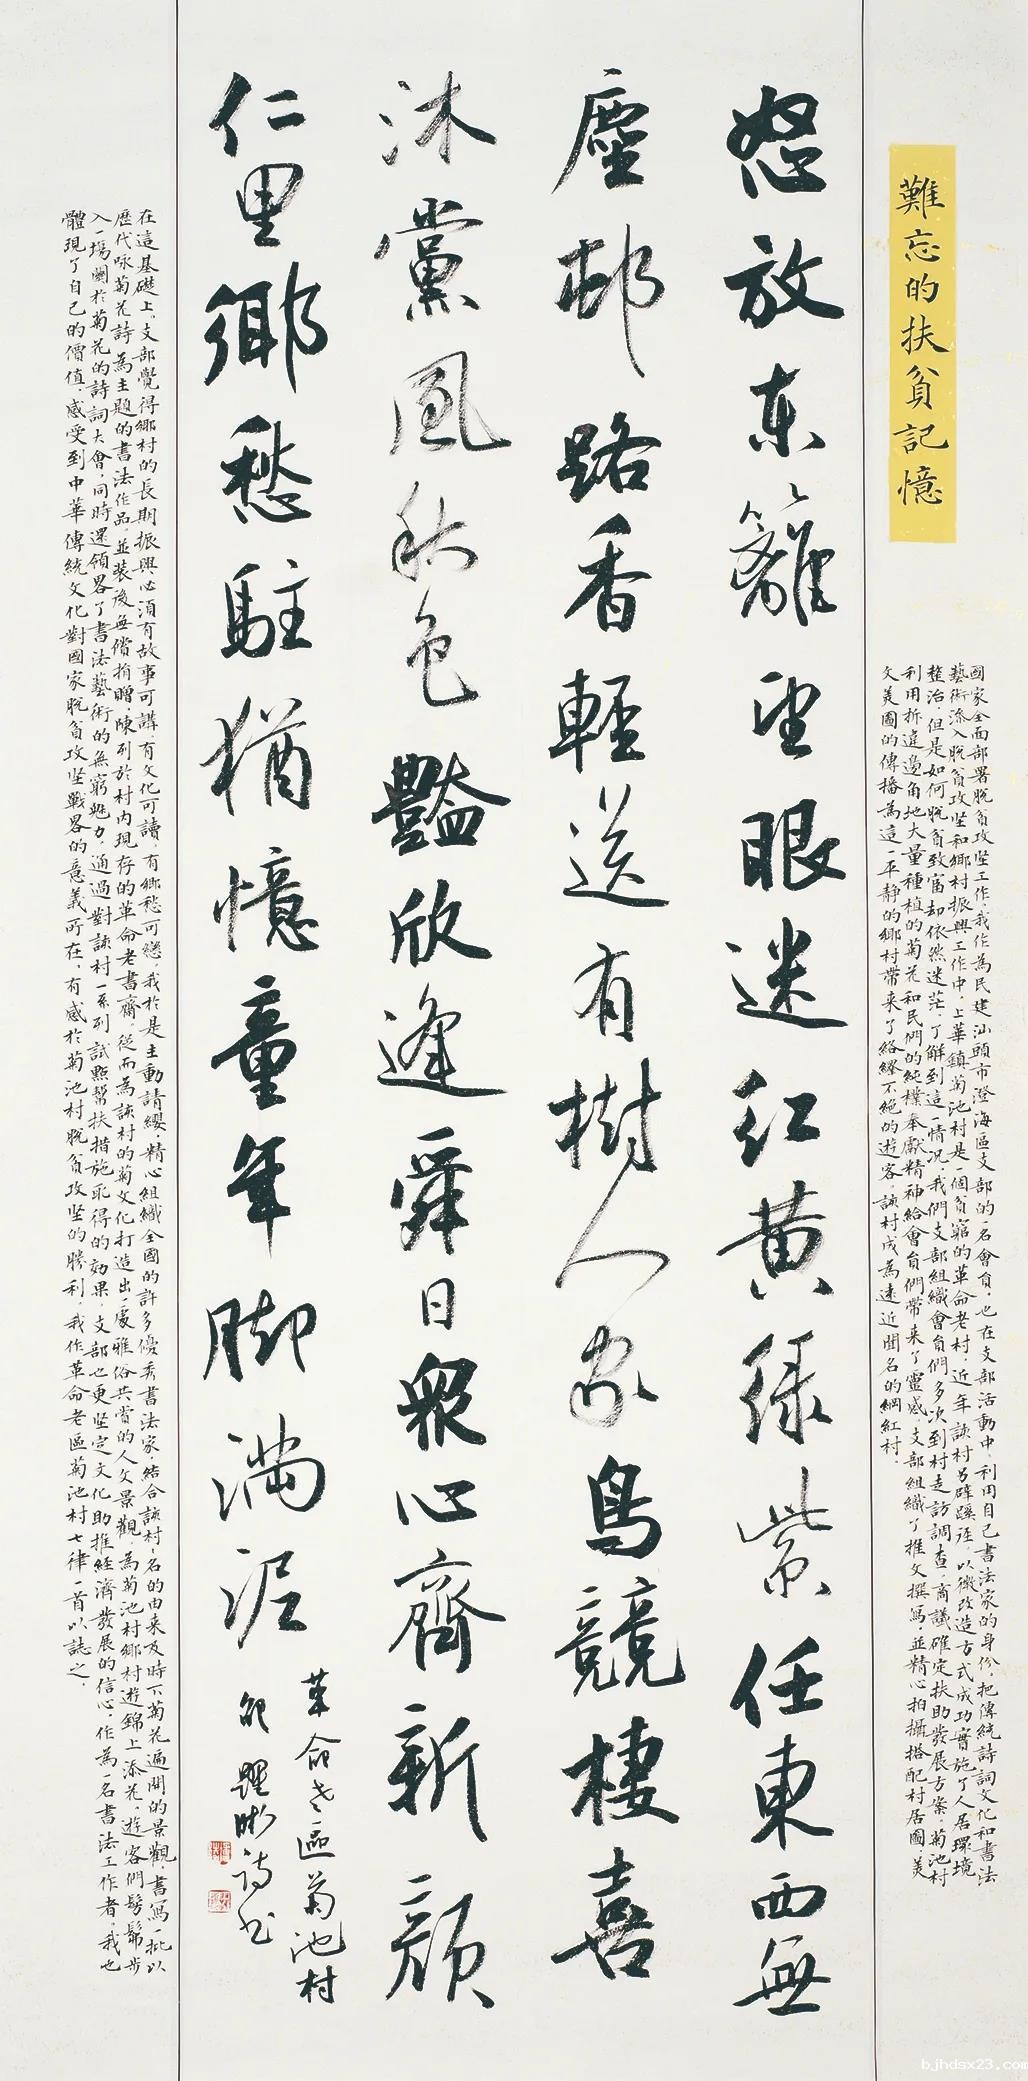 難忘的扶貧記憶
國家全面部署脫貧攻堅工作，我作為民建汕頭市澄海區支部的一名會員，也在支部活動中，利用自己書法家的身份，把傳統詩詞文化和書法
藝術添入脫貧攻堅和鄉村振興工作中，上華鎮菊池村是一個貧窮的革命老村，近年該村另辟蹊徑，以微改造方式成功實施了人居環境
整治，但是如何脫貧致富却依然迷茫，了解到這一情况，我們支部組織會員們多次到村走訪調查，商議確定扶助發展方案，菊池村
利用拆違邊角地大量種植的菊花和民們的純樸奉獻精神給會員們帶来了靈感，支部組織了推文撰寫，並精心拍攝搭配村居圖，美
文美圖的傳播為這一平靜的鄉村帶来了絡繹不絕的遊客，該村成為遠近聞名的網紅村。
怒放东籬望眼迷红黄绿紫任東西無
塵邨路香輕送有樹人家鳥競棲喜
沐黨風秋色豔欣逢舜日衆心齊新顏
仁里鄉愁駐猶憶童年脚满泥
革命老區菊池村
躍彬诗书
在這基礎上，支部覺得鄉村的長期振興必須有故事可講，有文化可讀，有鄉愁可戀，我於是主動請纓，精心組織全國的許多優秀書法家，結合該村名的由来及時下菊花遍開的景觀，書寫一批以
歷代咏菊花詩為主題的書法作品，並装後無償捐贈，陳列於村内現存的革命老書齋，從而為該村的菊文化打造出一處雅俗共賞的人文景觀，為菊池村鄉村遊錦上添花，遊客們髣髴步
入一場關於菊花的詩詞大會，同時還領略了書法藝術的無窮魅力，通過對該村一系列試點幫扶措施取得的効果，支部也更堅定文化助推經濟發展的信心，作為一名書法工作者，我也
體現了自己的價值，感受到中華傳統文化對國家脫貧攻堅戰略的意義所在，有感於菊池村脫貧攻堅的勝利，我作革命老區菊池村七律一首以誌之。
bjhdsx23.com